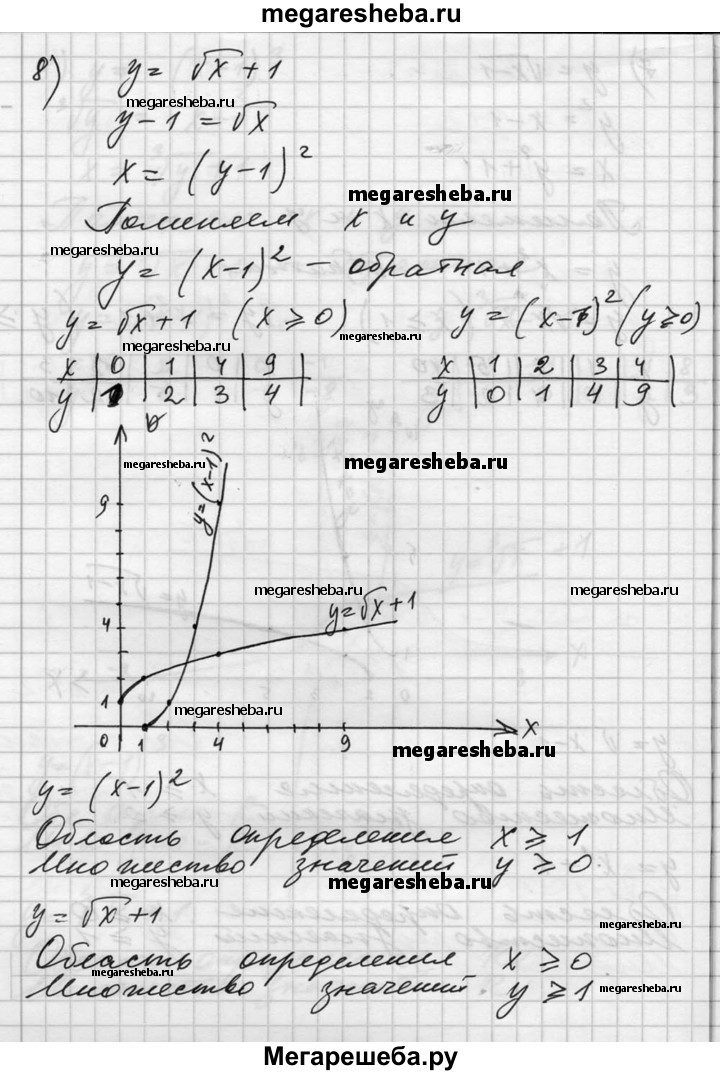 megaresheba.ru
8) y = √x + 1
megaresheba.ru
y - 1 = √x
x = (y-1)²
megaresheba.ru
Поменяем x и y
megaresheba.ru
y = (x-1)² - обратная
y = √x + 1 (x ≥ 0) y = (x-1)² (y ≥ 0)
megaresheba.ru megaresheba.ru
x | 0 | 1 | 4 | 9 | x | 1 | 2 | 3 | 4 |
y | 1 | 2 | 3 | 4 | y | 0 | 1 | 4 | 9 |
megaresheba.ru megaresheba.ru
y=(x-1)²
9
megaresheba.ru megaresheba.ru
y=√x+1
4
1
megaresheba.ru
0 1 4 9 X
megaresheba.ru
y = (x-1)²
Область определения x ≥ 1
Множество значений y ≥ 0
megaresheba.ru megaresheba.ru
y = √x + 1
megaresheba.ru
Область определения x ≥ 0
megaresheba.ru
Множество значений y ≥ 1
megaresheba.ru
Мегарешеба.ру